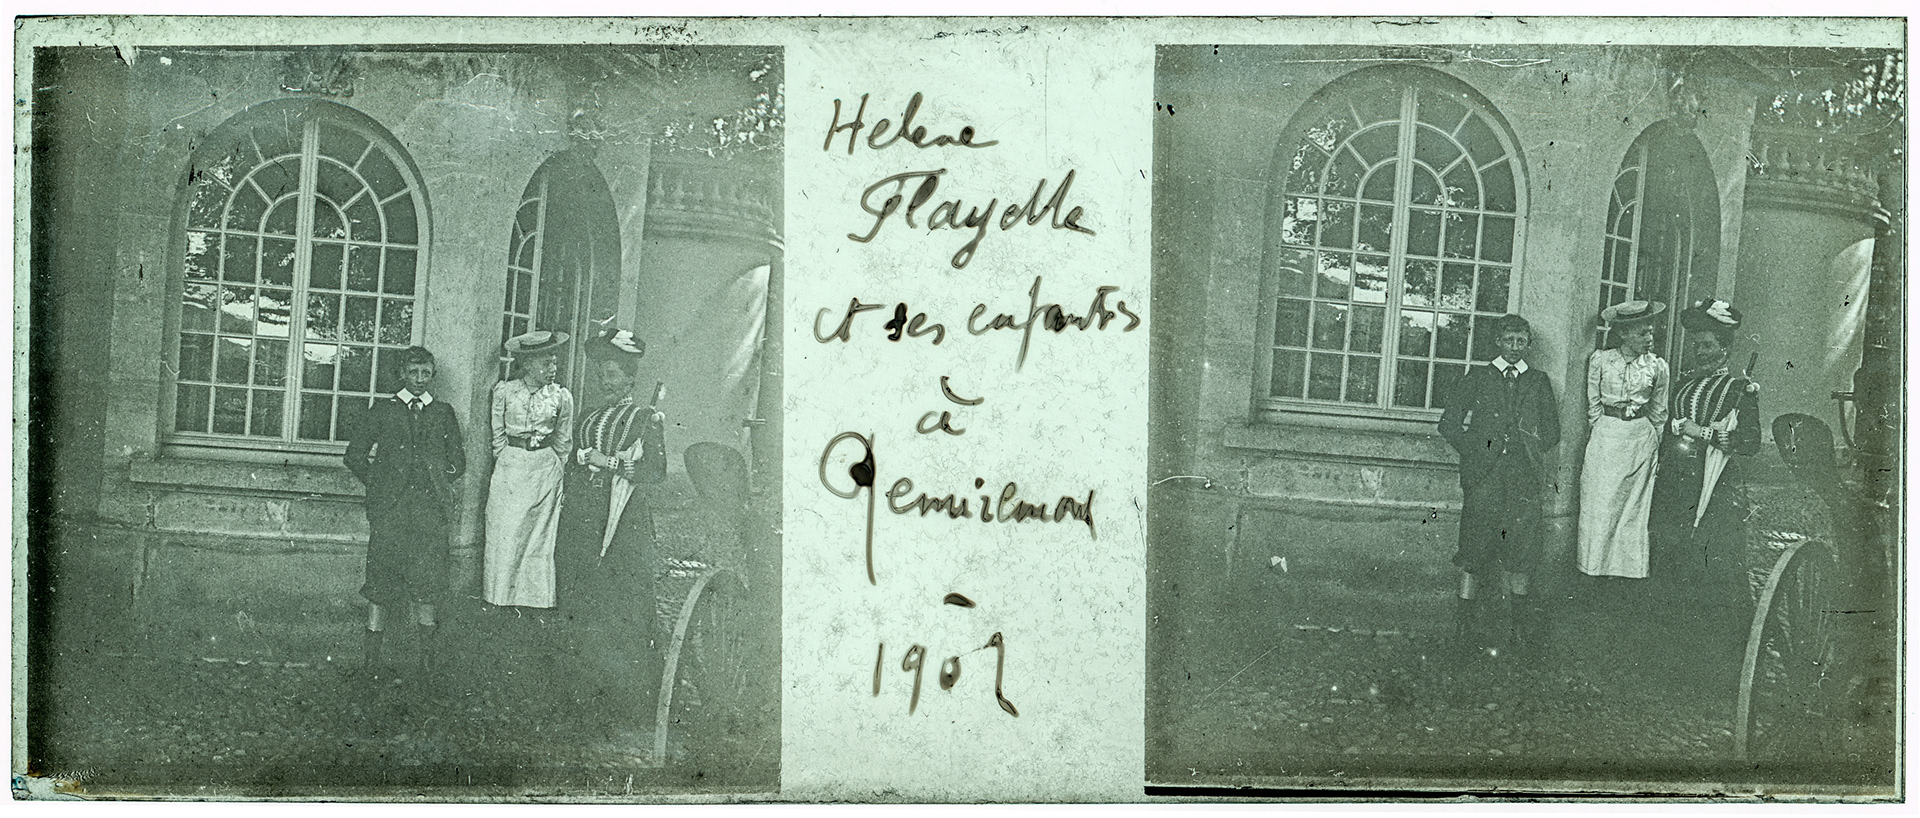 Helene
Flayelle
et ses enfants
à
Remiremont
-
1902